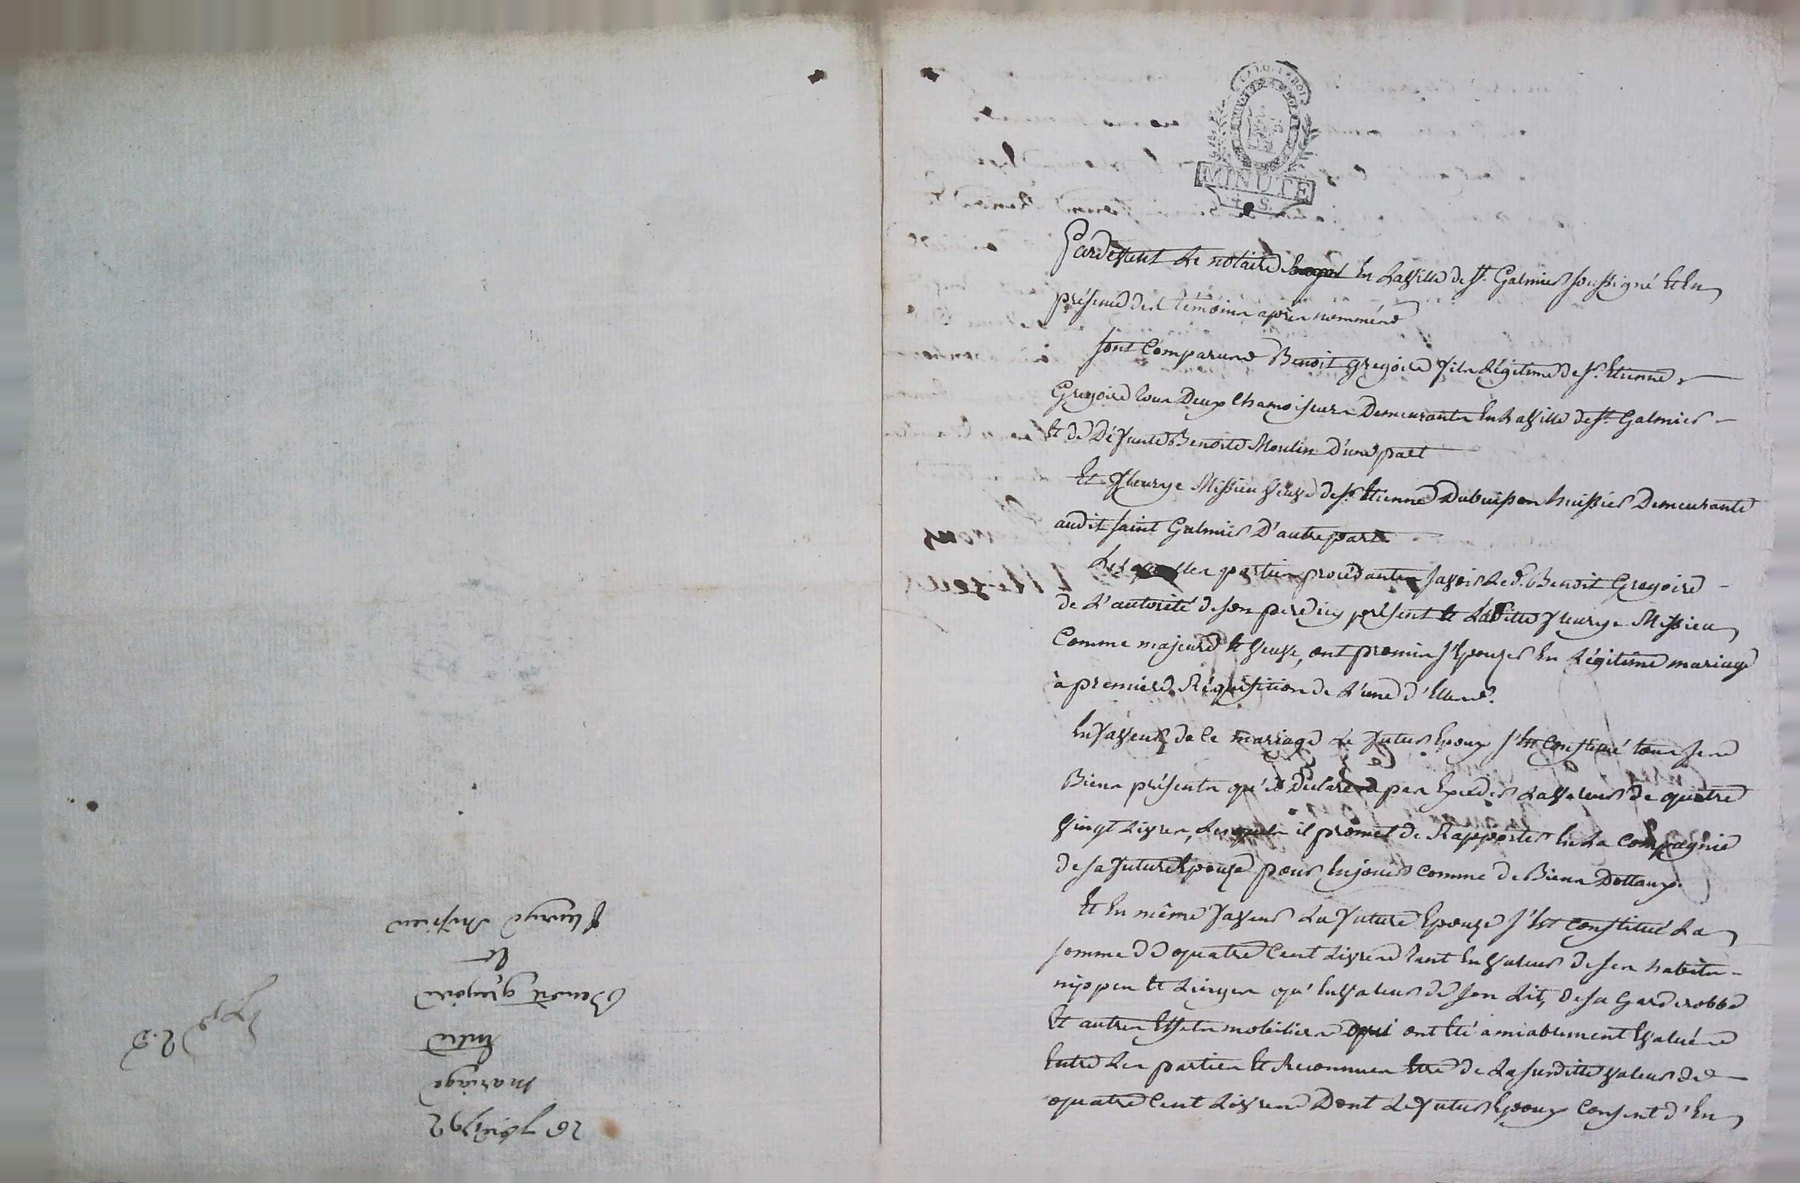 MINUTE
4. S.
Pardevant Le notaire Royal En Laville de St. Galmier soussigné Et En
présence des témoins après nommés
sont Comparus Benoit gregoire fils Légitime de Sr. Etienne
Gregoire tous Deux Chamoiseurs Demeurants En Laville de St. Galmier
Et de Défunte Benoite Moulin D'une part
Et fleurye Missieu veuve de Sr. Etienne Dubuisson huissier Demeurante
audit saint Galmier D'autre part
Lesquelles parties procédantes savoir Le d. Benoit Gregoire
de L'autorité de son pere icy présent Et Laditte fleurye Missieu
Comme majeure Et veuve, ont promis s'Epouzer En Légitime mariage
à premiere Réquisition de L'une d'Elles.
En faveur de Ce mariage Le futur Epoux s'Est Constitué tous ses
Biens présents qu'il Déclare pas Exceder La valeur de quatre
vingt Livres, Lesquels il promet de Rapporter En La Compagnie
de sa future Epouze pour En jouir comme de Biens Dottaux.
Et En même faveur La future Epouze s'Est Constitué La
somme de quatre Cent Livres tant En valeur de ses habits
nippes Et Linges qu'En valeur de son Lit, de sa Garderobbe
Et autres Effets mobiliers qui ont Eté amiablement Evalués
Entre Les parties Et Reconnues Etre de La susditte valeur de
quatre Cent Livres Dont Le futur Epoux Consent d'En
1792
mariage
Entre
Benoit gregoire
Et
fleurye Missieu